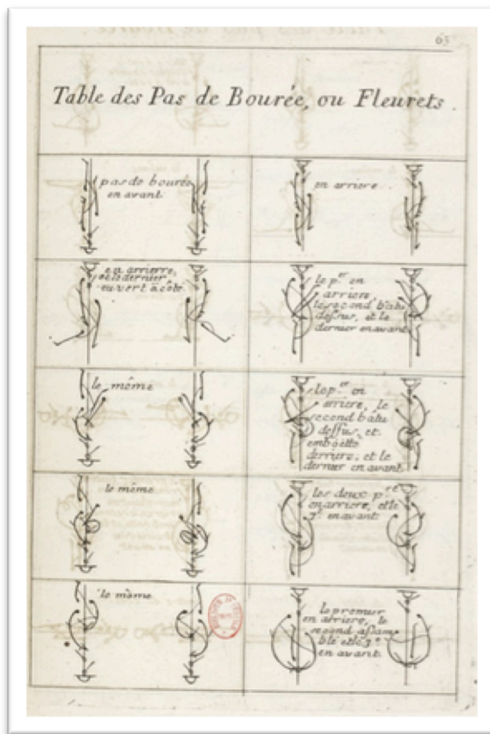 65
Table des Pas de Bourée, ou Fleurets.
pas de bourée
en avant
en arriere
en arrierre,
et le dernier
ouvert a côté
le p.er en
arriere,
le second batu
dessus, et le
dernier en avant
le même
le p.er en
arriere, le
second batu
dessus, et
emboetté
derriere, et le
dernier en avant
le même
les deux p.rs
en arriere, et le
3.e en avant
le même
le premier
en arriere, le
second assam-
blé et le 3.e
en avant